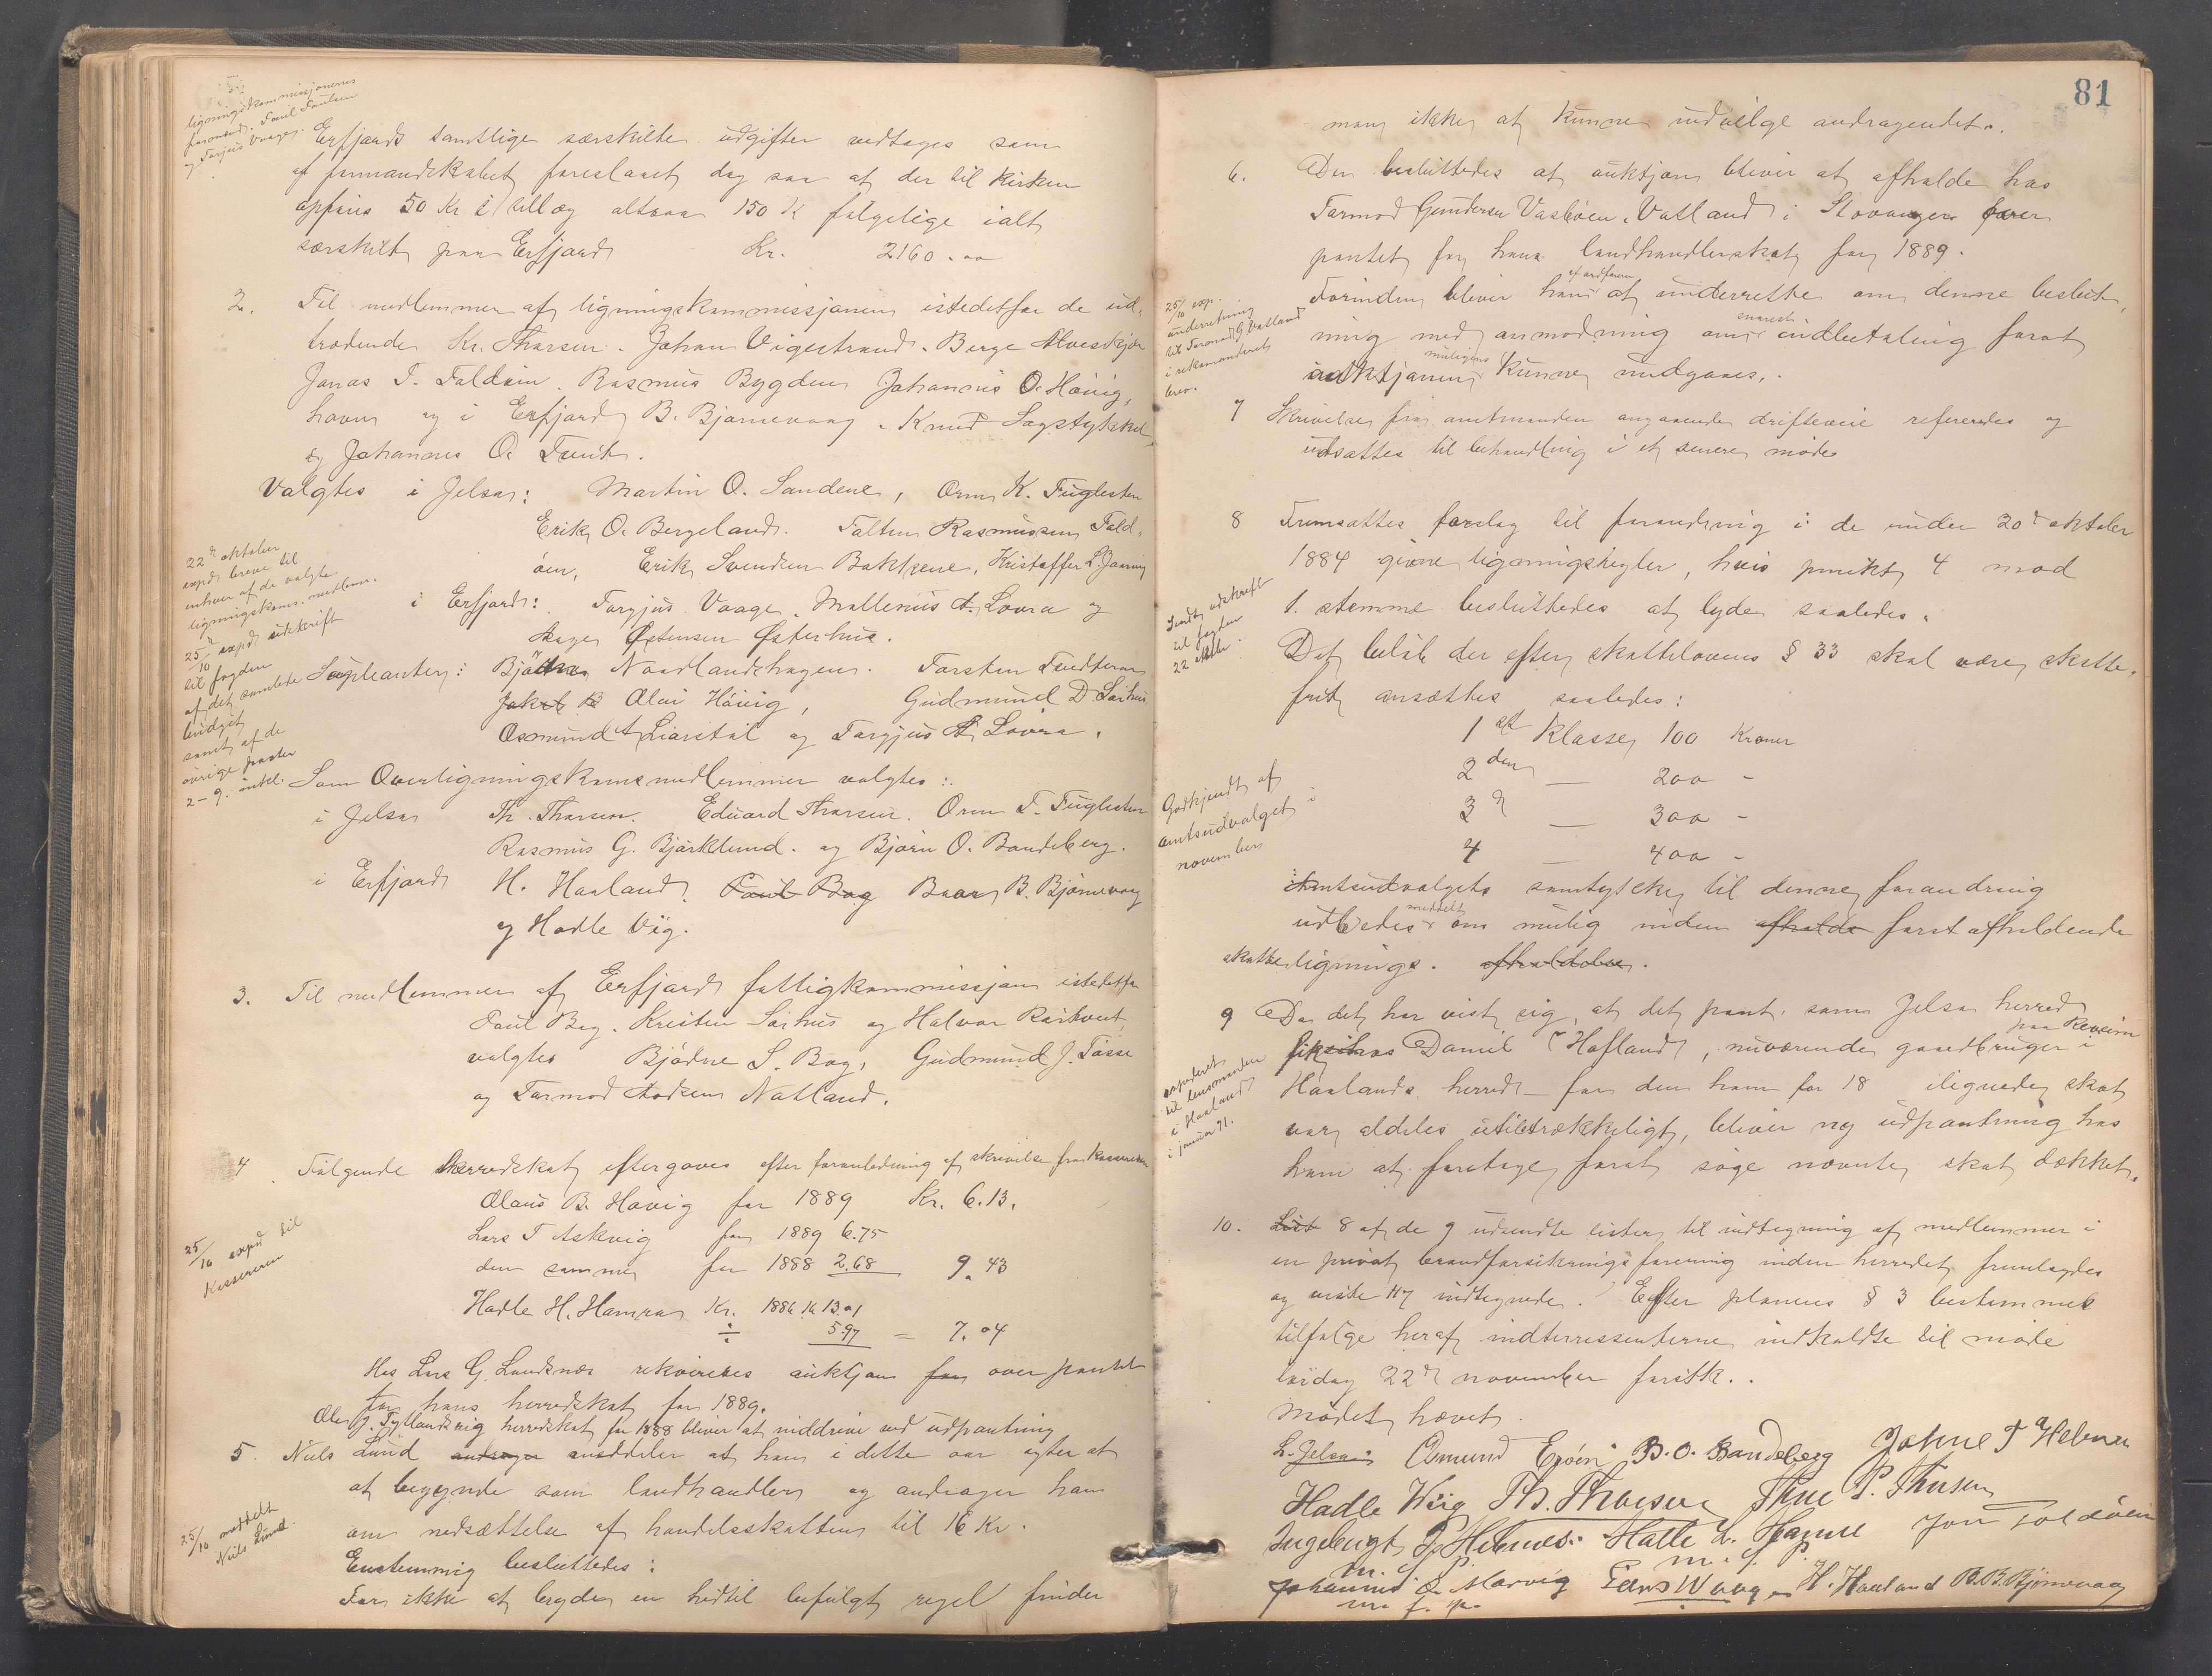 ligningskommissjonens
formand: Paul Paulsen
og Torjus Vaage.
Erfjords samtlige særskilte udgifter vedtages som
af formandskabet foreslaaet dog saa at der til kirken
opføres 50 Kr i tillæg altsaa 150 K følgelige ialt
særskilt paa Erfjord Kr. 2160.00
2. Til medlemmer af ligningskommissjonen istedetfor de ud-
trædende Kr. Thorsen. Johan Vigestrand. Børge
Jonas T. Foldøin. Rasmus Bygden Johannes O. Høivig,
havn og i Erfjord B. Bjørnevaag. Knud Sagstykket
og Johannes O. Tveit.
Valgtes i Jelsa: Martin O. Sandene, Orm K. Fuglesten
Erik O. Bergeland. Rasmussen Fold-
øen, Erik Svendsen Bakkene, Kristoffer L.
i Erfjord: Torgjus Vaage. Mallenius A. Lovra og
Aage Østensen Østerhus.
22d oktober
expd breve til
enhver af de valgte
ligningskoms. medlem.
25/10 expd udskrift
til fogden
af det samlede
budget
samt af de
øvrige poster
2-9. inkl.
Supleanter: Bjødne Nordlandshagen. Torsten
Jakob B Olai Høivig, Gudmund D. Sørhus
Osmund A. Liarstøl og Torgjus A. Lovra.
Som Overligningskomsmedlemmer valgtes:
i Jelsa Th. Thorsen. Eduard Thorsen. Orm T. Fuglesten
Rasmus G. Bjørklund. og Bjørn O. Bandeberg.
i Erfjord H. Haaland. Paul Bog Baar B. Bjørnevaag
og Hadle Vig.
3. Til medlemmer af Erfjord fattigkommissjon istedetfor
Paul Bog. Kristen Sørhus og Halvor Rørkvet,
valgtes Bjødne S. Bog, Gudmund J. Tøsse
og Tormod Aadsen Natland.
4. Følgende herredskat eftergaves efter foranledning af skrivelse fra kassereren
Olaus B. Høvig for 1889 Kr. 6.13.
Lars T Askvig for 1889 6.75
den samme for 1888 2.68 9.43
Hadle H. Hamra Kr. 13.01
÷ 5.97 = 7.04
25/10 expd til
Kassereren
Hos Lars G. Landsnes rekvireres auktjon for over pantet
for hans herredskat for 1889.
Ole J. herredskat for 1888 bliver at inddrive ved udpantning
5. Niels Lund andrager meddeler at han i dette aar agter at
at begynde som landhandler og andrager han
om nedsættelse af handelsskatten til 16 Kr.
25/10 meddelt
Niels Lund.
Enstemmig besluttedes:
For ikke at bryde en hidtil befulgt regel finder
81
man ikke at kunne indvilge andragendet.
6. Der besluttedes at auktjon bliver at afholde hos
Tormod Gundersen Vasbøen, Vatland i Stavanger over
pantet for hans landhandlerskat for 1889.
Forinden bliver han af ordføren at underrette om denne beslut-
ning med anmodning om snarest indbetaling forat
auktjonen muligens kunne undgaaes.
25/10 exp.
underretning
til Tormod G Vatland
i rekomanderet
brev.
7 Skrivelse fra amtmanden angaaende drifteveie refereredes og
udsattes til behandling i et senere møde
8 Fremsattes forslag til forandring i de under 20d oktober
1884 givne ligningsregler, hvis punkt 4 mod
1. stemme besluttedes at lyde saaledes.
Sendt udskrift
til fogden
22 oktbr.
Det beløb der efter skattelovens § 33 skal være skatte-
frit ansættes saaledes:
1ste Klasse 100 Kroner
2den — 200 -
3d — 300 -
4 — 400 -
Godkjendt af
amtsudvalget i
november
Amtsudvalgets samtykke til denne forandring
udbedes meddelt om mulig inden afholde først afholdende
skatteligninge. afholdelse.
9 Da det har vist sig, at det pant som Jelsa herred
fik hos Daniel T Hofland, nuværende gaardbruger paa Revein i
Haalands herred – for den ham for 18 ilignede skat
var aldeles utilstrækkeligt, bliver ny udpantning hos
ham at foretage forat søge nævnte skat dækket.
expederet
til lensmanden
i Haaland
i januar 91.
10. List 8 af de 9 udsendte lister til indtegning af medlemmer i
en privat brandforsikringsforening inden herredet fremlagdes
og viste 117 indtegnede. Efter planens § 3 bestemmes
tilfølge heraf indterressenterne indkaldte til møde
lørdag 22d november førstk..
Mødet hævet.
L. Jelsa Osmund Eøien B. O. Bandeberg Johne T Helmen
Hadle Wiig Th. Thorsen Thue P. Thusen
Ingebrigt P. Helmes. Halle L. Hamre Jon Foldøen
m. f. p. m. f. p.
Johannes O. Marvig Lars Waage H. Haaland B. B. Bjørnevaag
m. f. p.